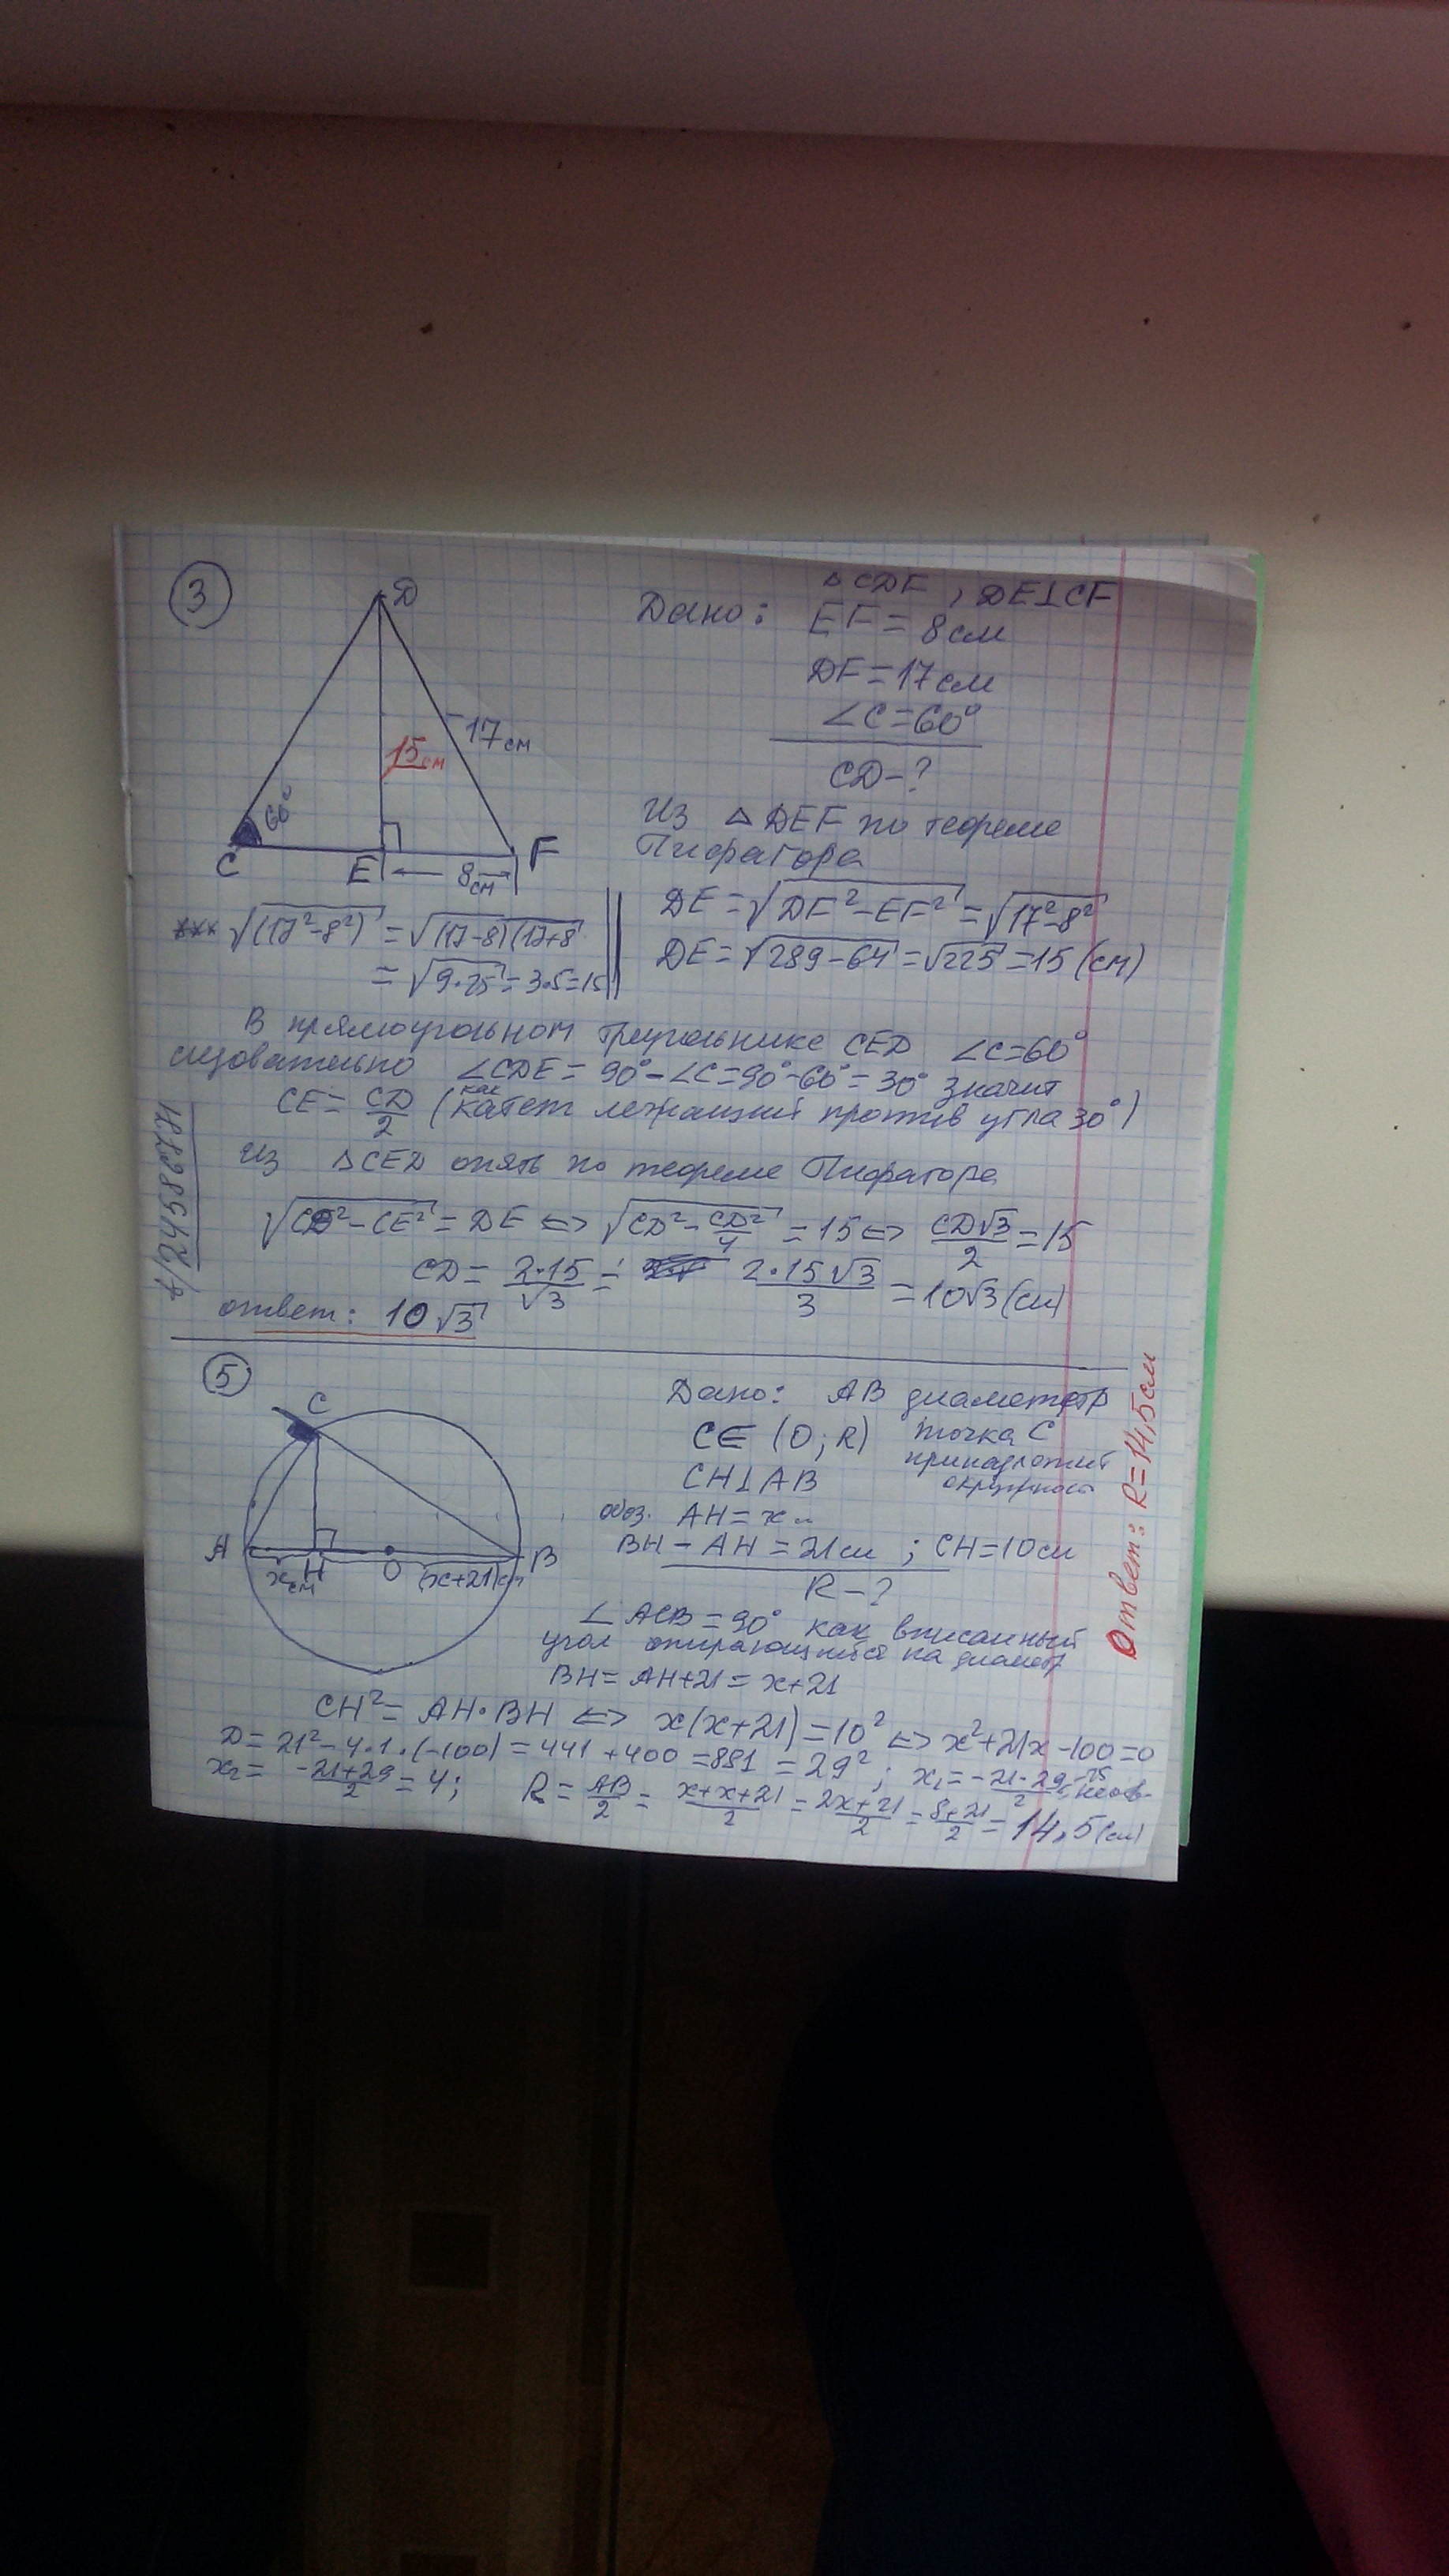 3
D
17см
15см
60°
C
E
F
8см
Дано: △CDF, DE⊥CF
EF = 8см
DF = 17см
∠C = 60°
CD - ?
Из △DEF по теореме
Пифагора
DE = √(DF² - EF²) = √(17² - 8²)
DE = √(289 - 64) = √225 = 15 (см)
*** √(17² - 8²) = √(17-8)(17+8
= √9·25 = 3·5 = 15
В прямоугольном треугольнике CED ∠C = 60°
следовательно ∠CDE = 90° - ∠C = 90° - 60° = 30° значит
CE = CD/2 (как катет лежащий против угла 30°)
Из △CED опять по теореме Пифагора
√(CD² - CE²) = DE ⇔ √(CD² - CD²/4) = 15 ⇔ CD√3/2 = 15
CD = 2·15/√3 = 2·15√3/3 = 10√3 (см)
ответ: 10√3
t/24586771
5
C
A
H
O
B
x см
(x+21)см
Дано: AB диаметр
C∈ (O; R) точка C
принадлежит
окружност
CH⊥AB
обоз. AH = x
BH - AH = 21см ; CH = 10см
R - ?
∠ACB = 90° как вписанный
угол опирающийся на диаметр
BH = AH + 21 = x + 21
CH² = AH·BH ⇔ x(x+21) = 10² ⇔ x² + 21x - 100 = 0
D = 21² - 4·1·(-100) = 441 + 400 = 881 = 29² ; x₁ = -21-29/2 = -25
x₂ = -21+29/2 = 4; R = AB/2 = x+x+21/2 = 2x+21/2 = 8+21/2 = 14,5 (см)
Ответ: R = 14,5см